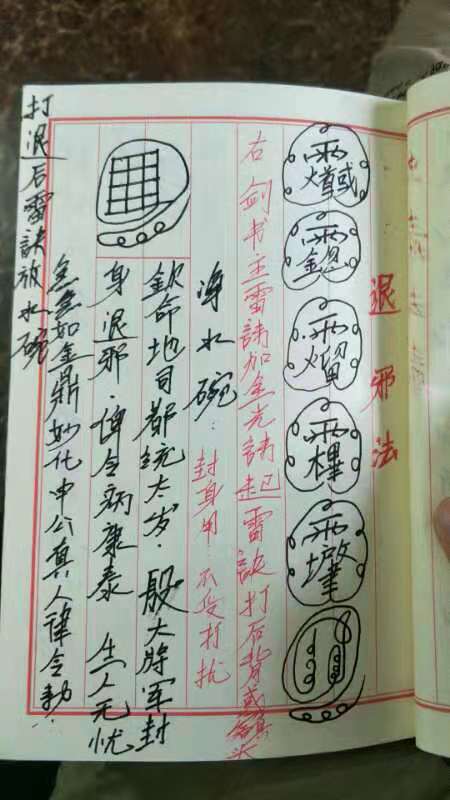 退邪法
右剑书主雷諱加金光諱起雷訣打后背或額头
净水碗：封身用 不受打扰
欽命地司都统太岁．殷大將军封
身退邪．俾令病康泰 生人无忧
急急如金鼎妙化申公真人律令勅
打退后雷訣放水碗